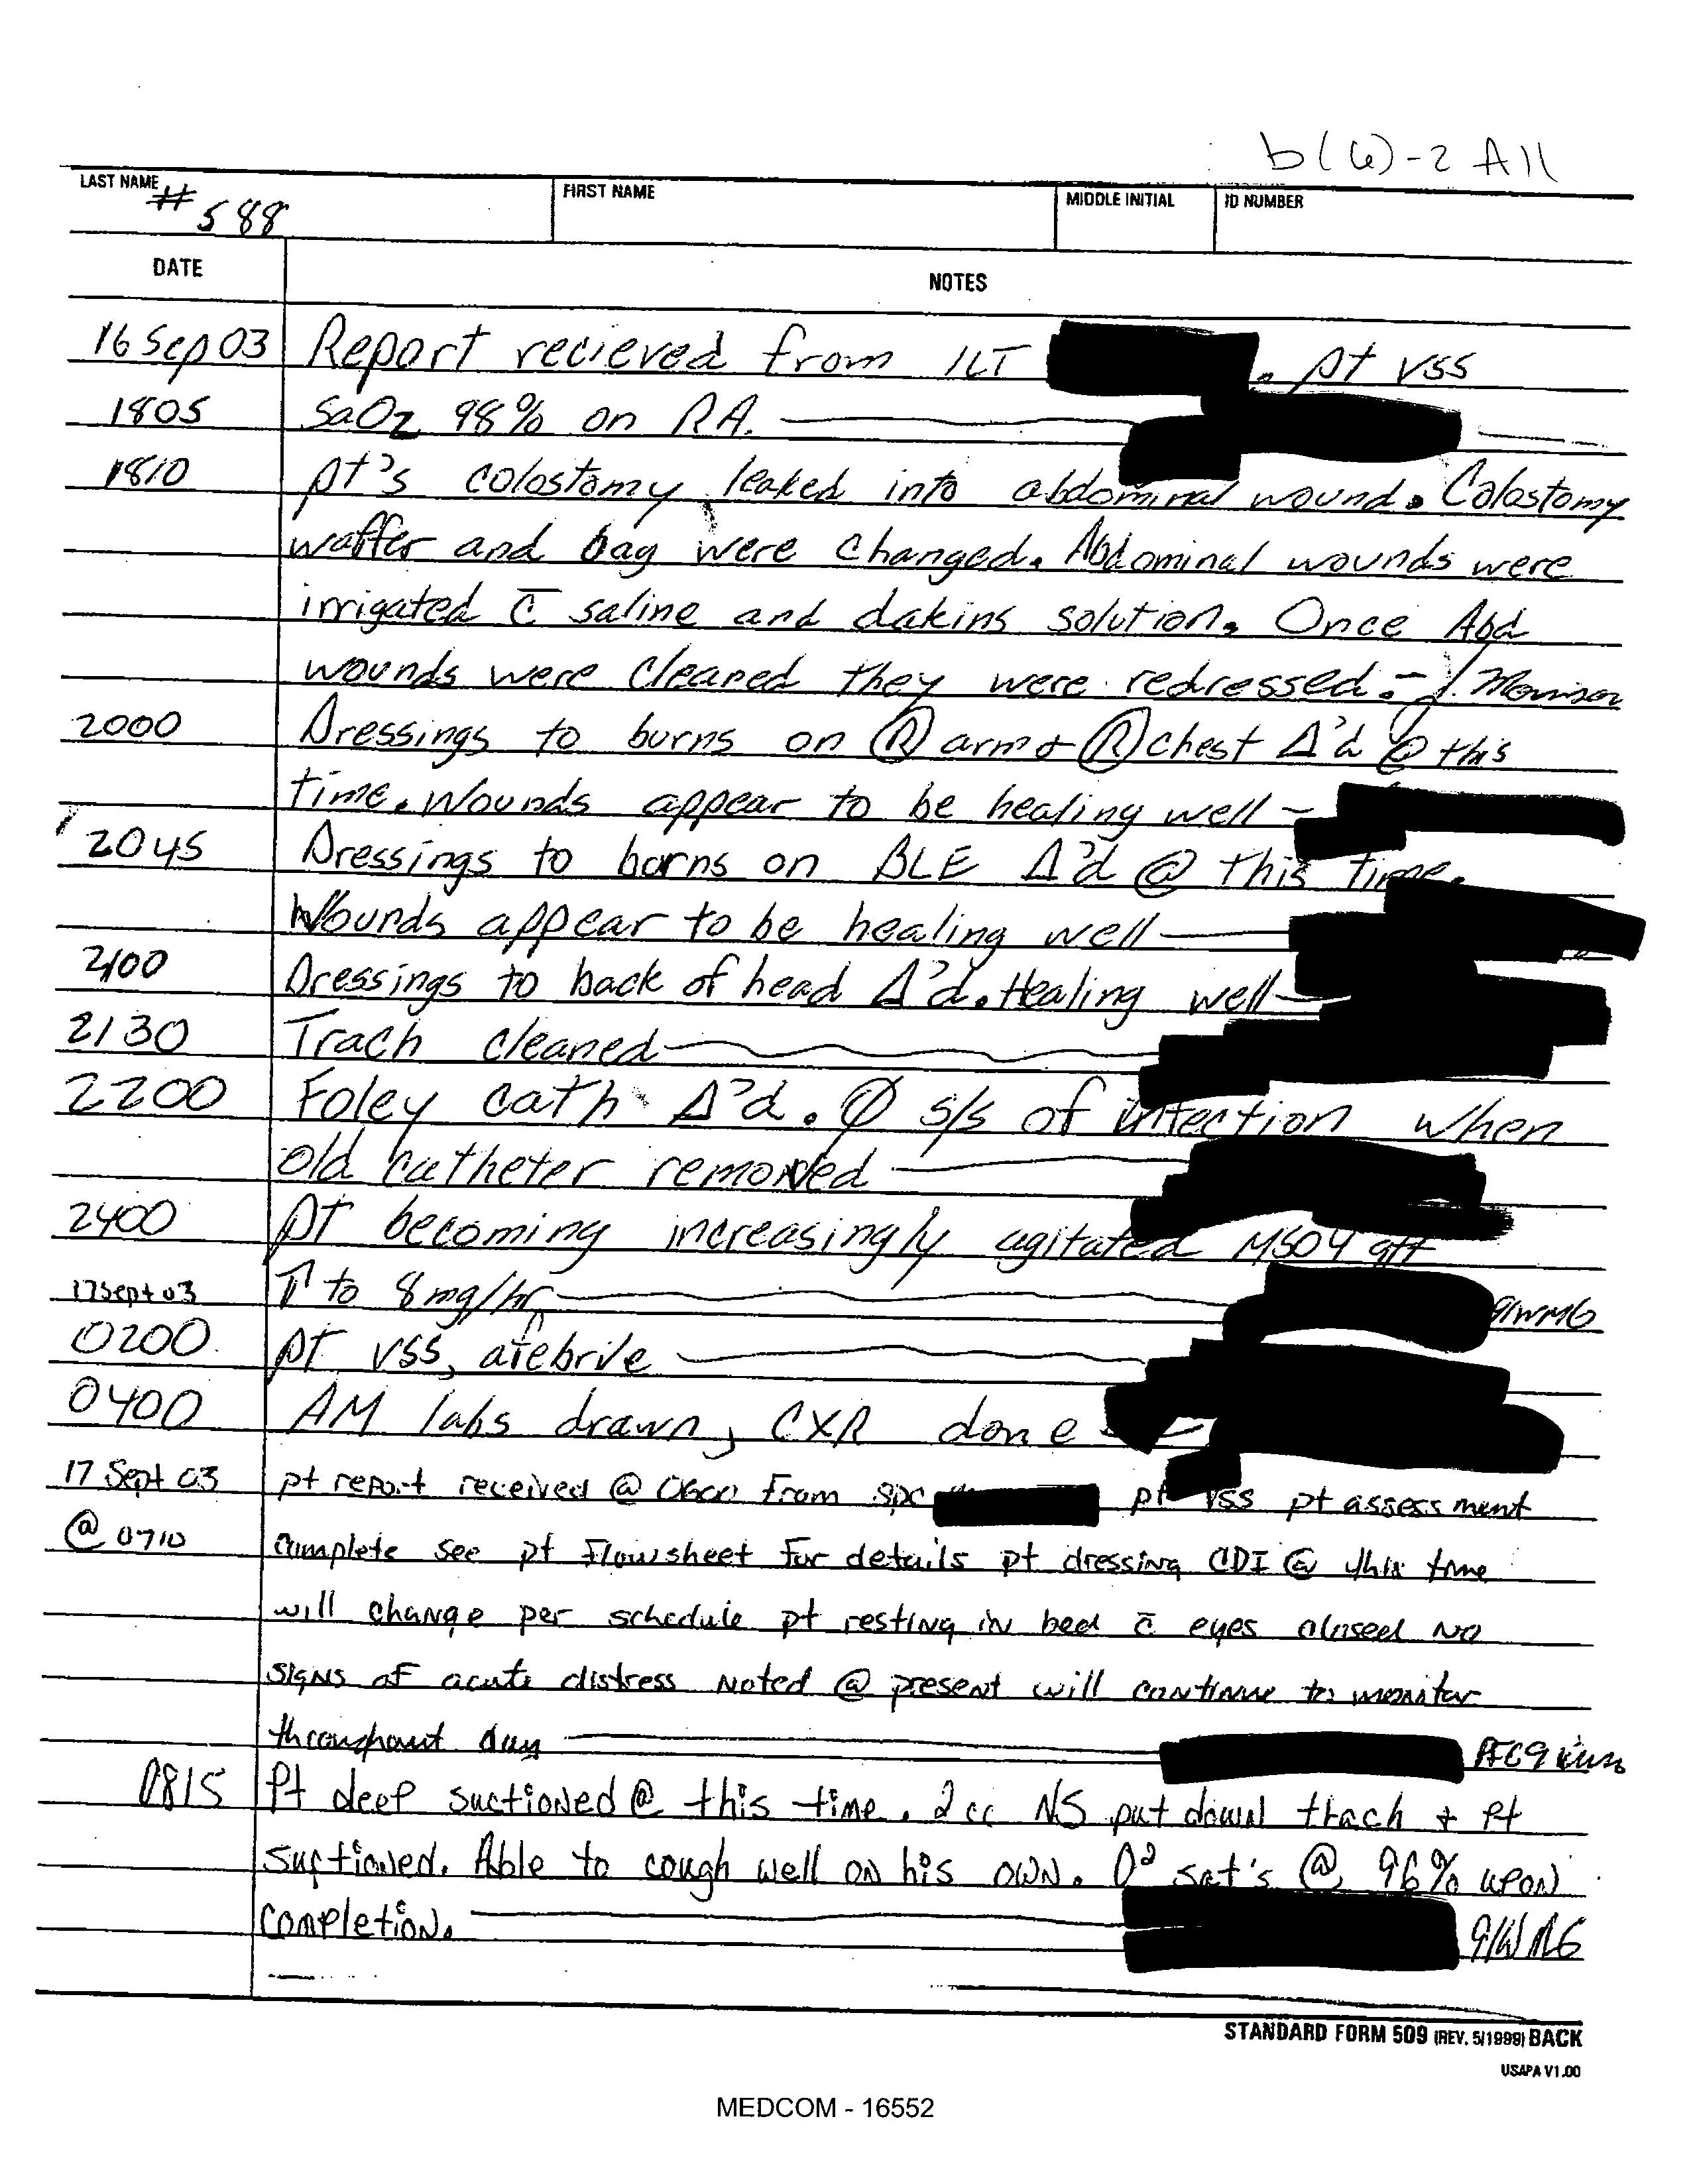 b(6)-2 All
LAST NAME FIRST NAME MIDDLE INITIAL ID NUMBER
# 588
DATE NOTES
16 Sep 03 Report recieved from 1LT . pt VSS
1805 SaO2 98% on RA.
1810 pt's colostomy leaked into abdominal wound. Colostomy
waffer and bag were changed. Abdominal wounds were
irrigated c̄ saline and dakins solution. Once Abd
wounds were cleaned they were redressed. - J.
2000 Dressings to burns on Ⓡ arm + Ⓡ chest Δ'd @ this
time. Wounds appear to be healing well -
2045 Dressings to burns on BLE Δ'd @ this time.
Wounds appear to be healing well
2100 Dressings to back of head Δ'd. Healing well
2130 Trach cleaned
2200 Foley cath Δ'd. Ø s/s of infection when
old catheter removed
2400 pt becoming increasingly agitated MSO4 gtt
17 Sept 03 ↑ to 8 mg/hr 91WM6
0200 pt VSS, afebrile
0400 AM labs drawn, CXR done
17 Sept 03 pt report received @ 0600 from SPC pt VSS pt assessment
@ 0710 complete see pt flowsheet for details pt dressing CDI @ this time
will change per schedule pt resting in bed c̄ eyes closed no
signs of acute distress noted @ present will continue to monitor
throughout day PFC
0815 Pt deep suctioned @ this time. 2 cc NS put down trach + pt
suctioned. Able to cough well on his own. O2 sat's @ 96% upon
completion. 91WM6
STANDARD FORM 509 (REV. 5/1999) BACK
USAPA V1.00
MEDCOM - 16552